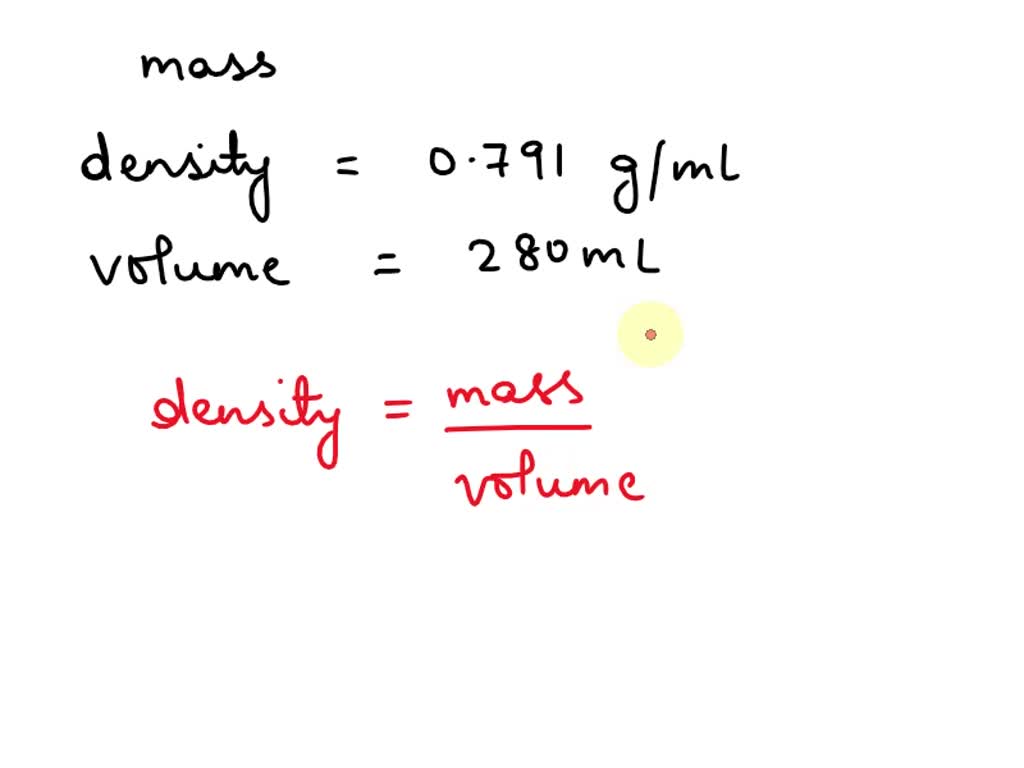 mass
density = 0.791 g/mL
volume = 280 mL
density = mass
volume